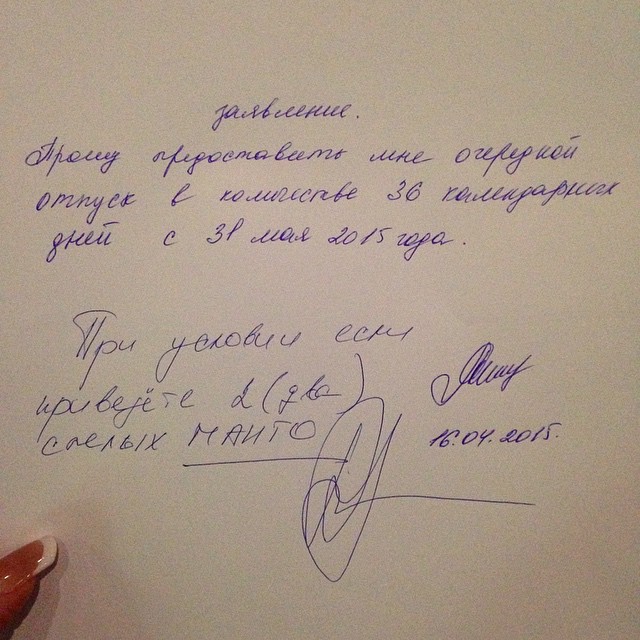 заявление.
Прошу предоставить мне очередной
отпуск в количестве 36 календарных
дней с 31 мая 2015 года.
При условии если
привезёте 2 (два)
спелых МАНГО
16.04.2015.